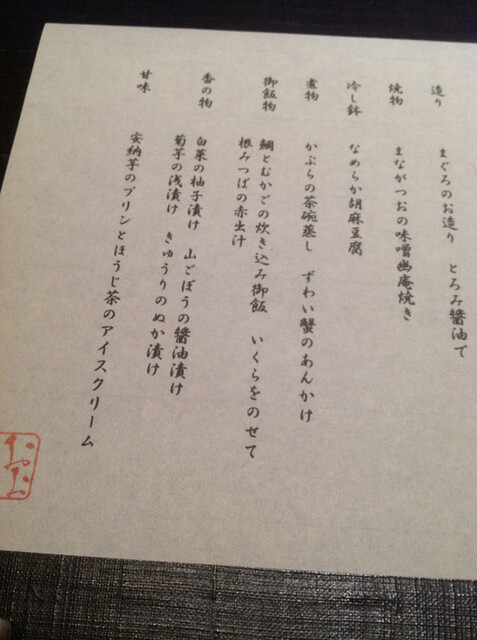 造り
まぐろのお造り とろみ醤油で
焼物
まながつおの味噌幽庵焼き
冷し鉢
なめらか胡麻豆腐
煮物
かぶらの茶碗蒸し ずわい蟹のあんかけ
御飯物
鯛とむかごの炊き込み御飯 いくらをのせて
根みつばの赤出汁
香の物
白菜の柚子漬け 山ごぼうの醤油漬け
菊芋の浅漬け きゅうりのぬか漬け
甘味
安納芋のプリンとほうじ茶のアイスクリーム